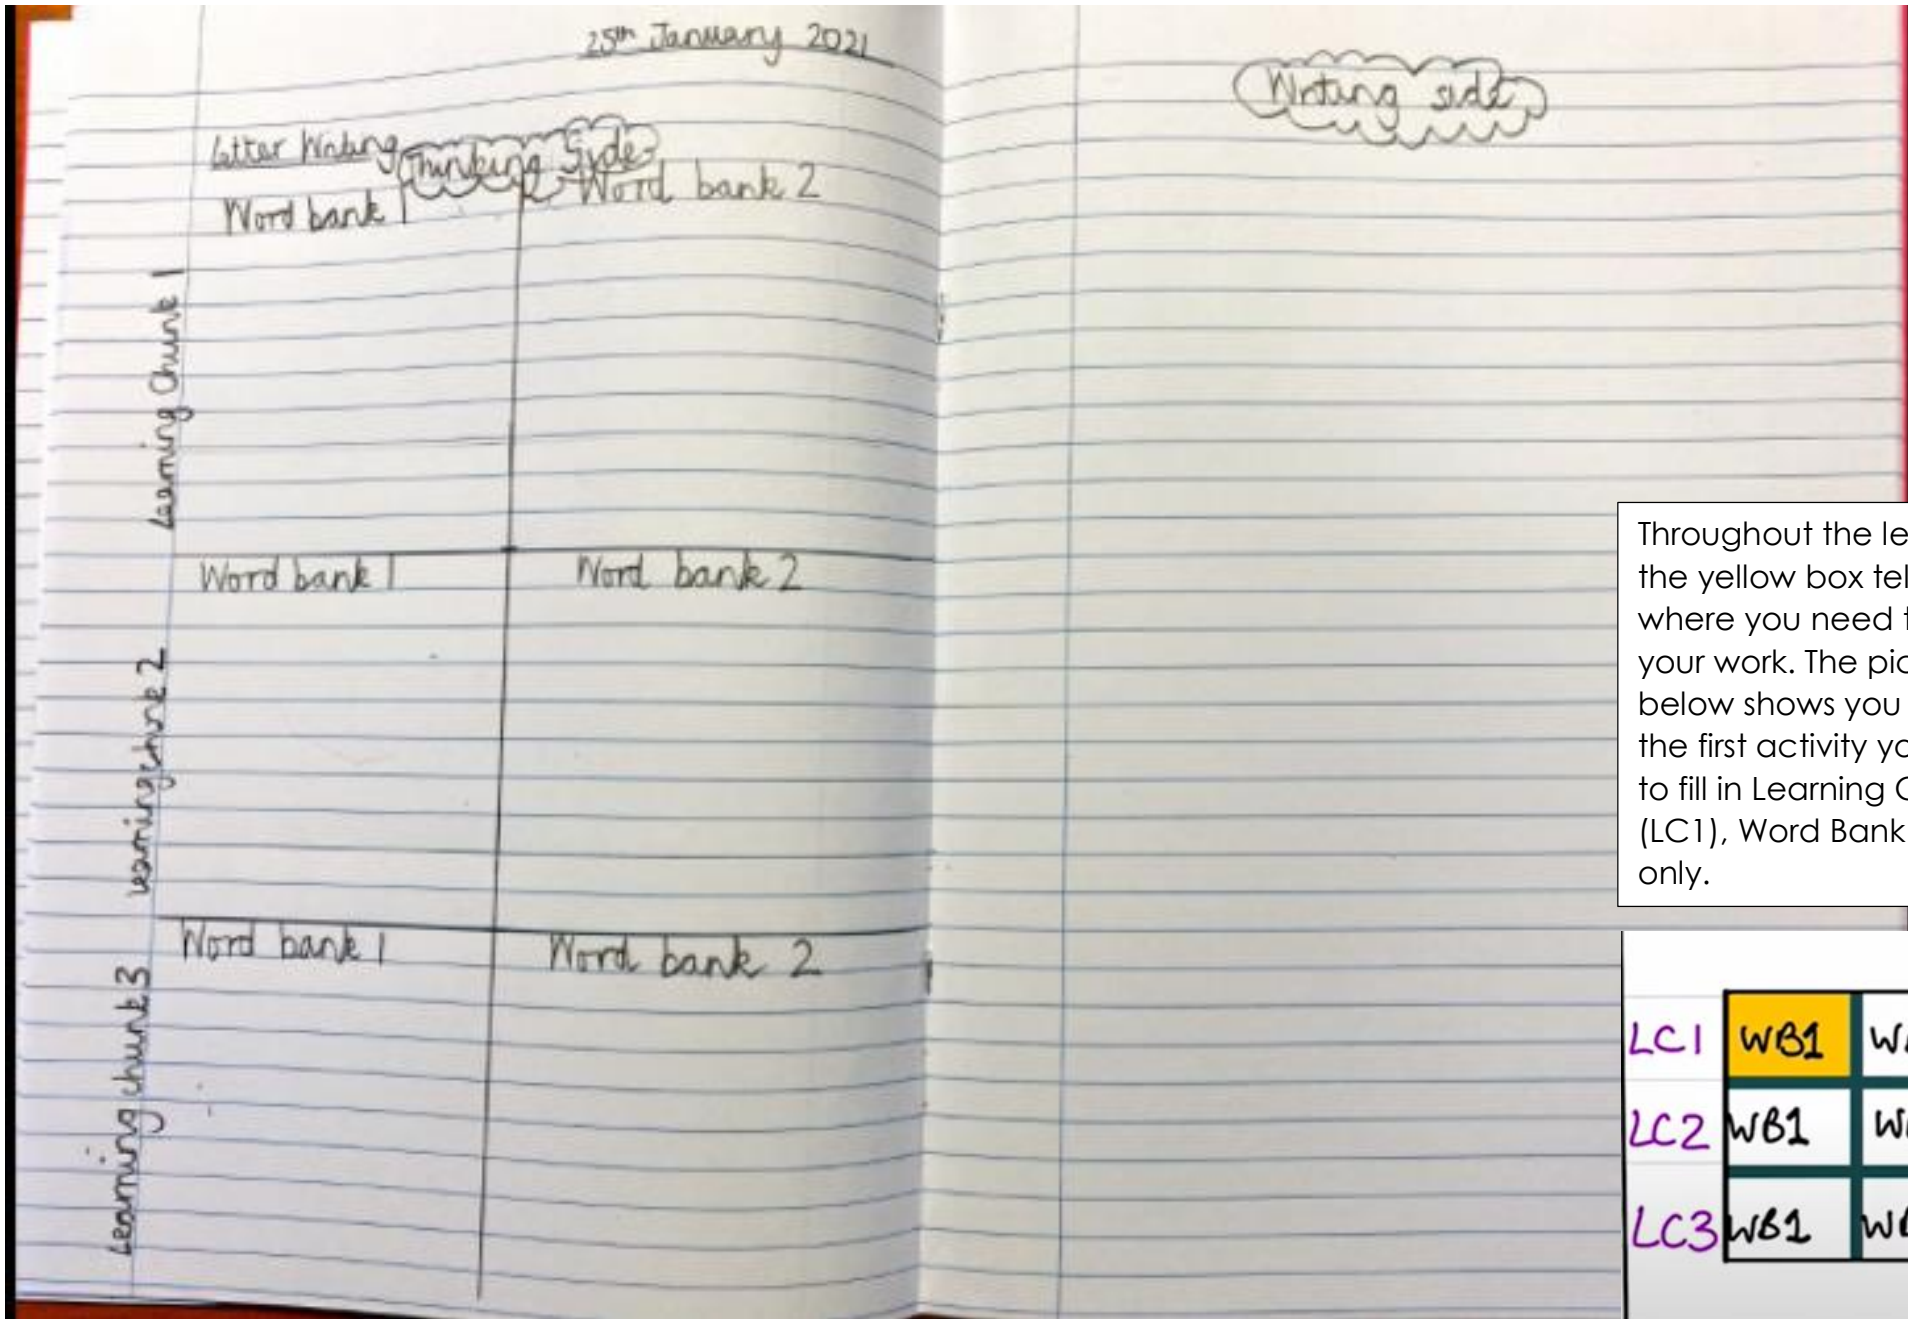 25th January 2021
Letter Writing
Thinking Side
Word bank 1
Word bank 2
Learning Chunk 1
Word bank 1
Word bank 2
Learning chunk 2
Word bank 1
Word bank 2
Learning chunk 3
Writing side
Throughout the le
the yellow box tel
where you need t
your work. The pic
below shows you
the first activity yo
to fill in Learning C
(LC1), Word Bank
only.
LC1 WB1 W
LC2 WB1 W
LC3 WB1 W